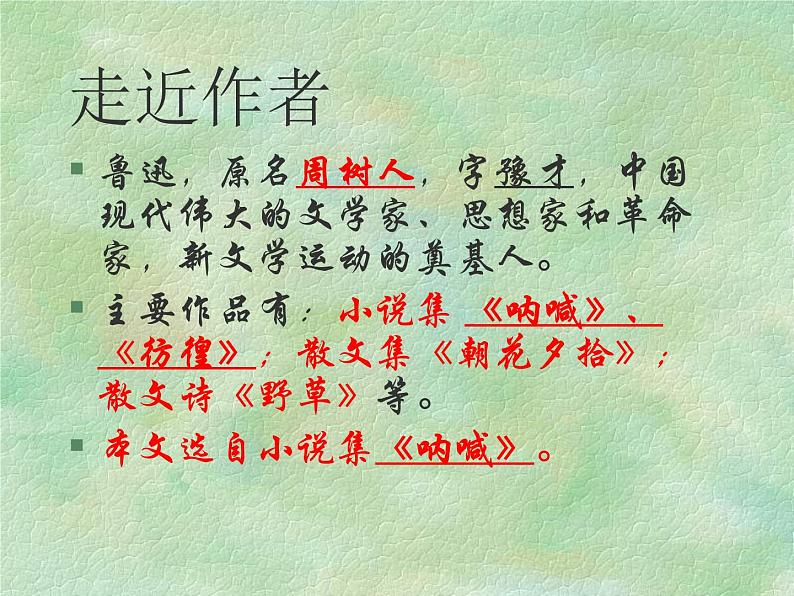 走近作者
鲁迅，原名周树人，字豫才，中国
现代伟大的文学家、思想家和革命
家，新文学运动的奠基人。
主要作品有：小说集《呐喊》、
《彷徨》；散文集《朝花夕拾》；
散文诗《野草》等。
本文选自小说集《呐喊》。